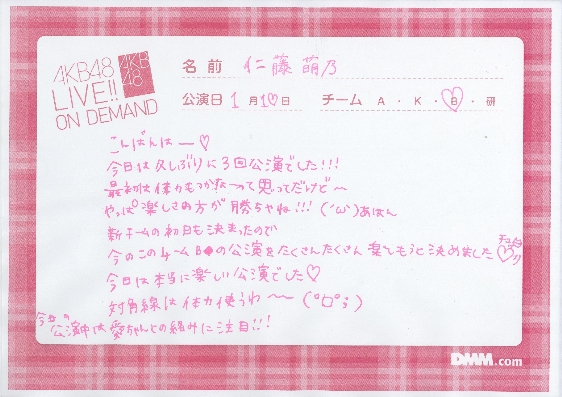 AKB48
LIVE!!
ON DEMAND
AKB
48
名前 仁藤萌乃
公演日 1月10日 チーム A・K・B・研
こんばんはー♡
今日は久しぶりに3回公演でした!!!
最初は体力もつかなーって思ってたけど〜
やっぱ楽しさの方が勝ちゃね!!!('ω')あはん
新チームの初日も決まったので
今のこのチームBの公演をたくさんたくさん楽しもうと決めました♡
今日は本当に楽しい公演でした♡
対角線は体力使うわ〜(°□°;)
今日の公演中は愛ちゃんとの絡みに注目!!!
DMM.com